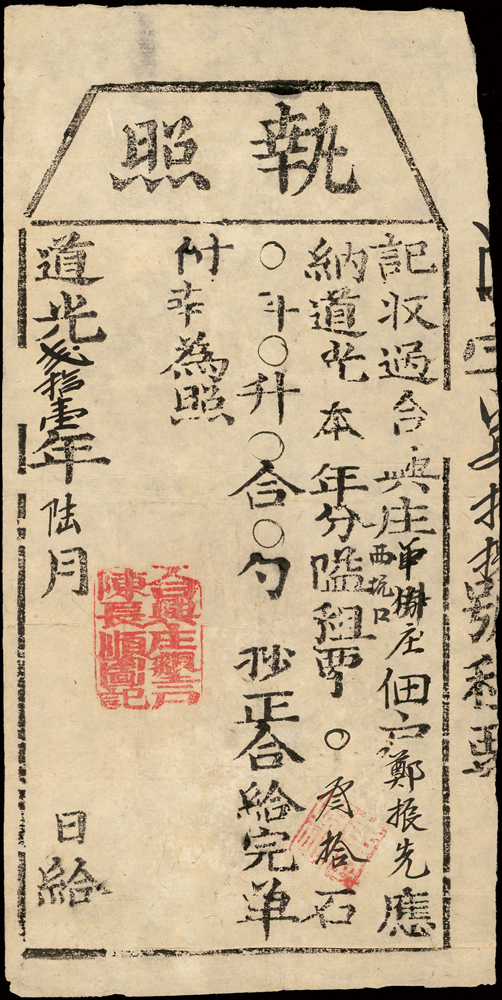 執照
記收過合興庄單櫥庄西坑口佃戶鄭振先應
納道光本年分隘租粟〇叁拾石
〇斗〇升〇合〇勺抄正合給完單
付幸為照
道光貳拾壹年陸月 日給
合興庄墾戶
陳長順圖記
號租票